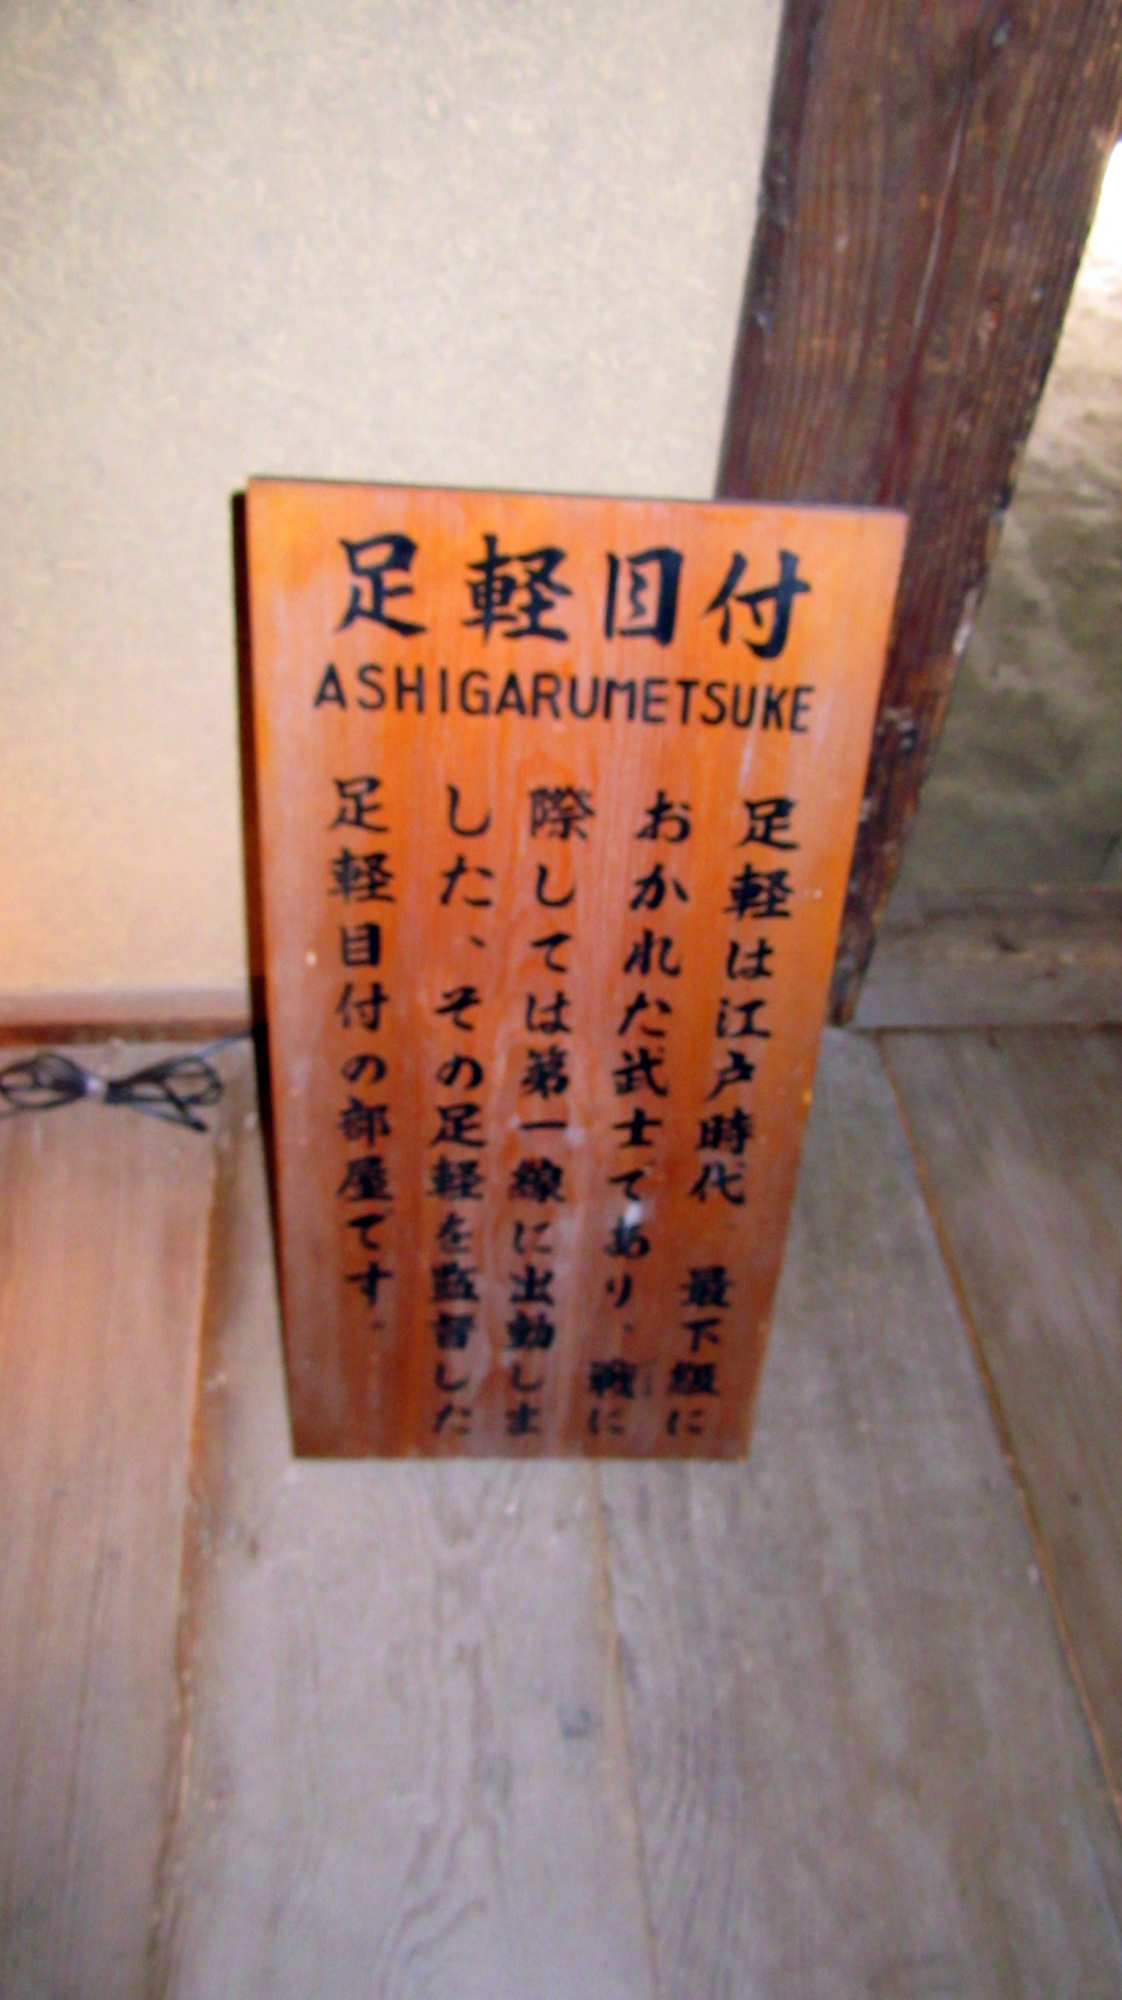 足軽目付
ASHIGARUMETSUKE
足軽は江戸時代、最下級に
おかれた武士であり、戦に
際しては第一線に出動しま
した、その足軽を監督した
足軽目付の部屋です。